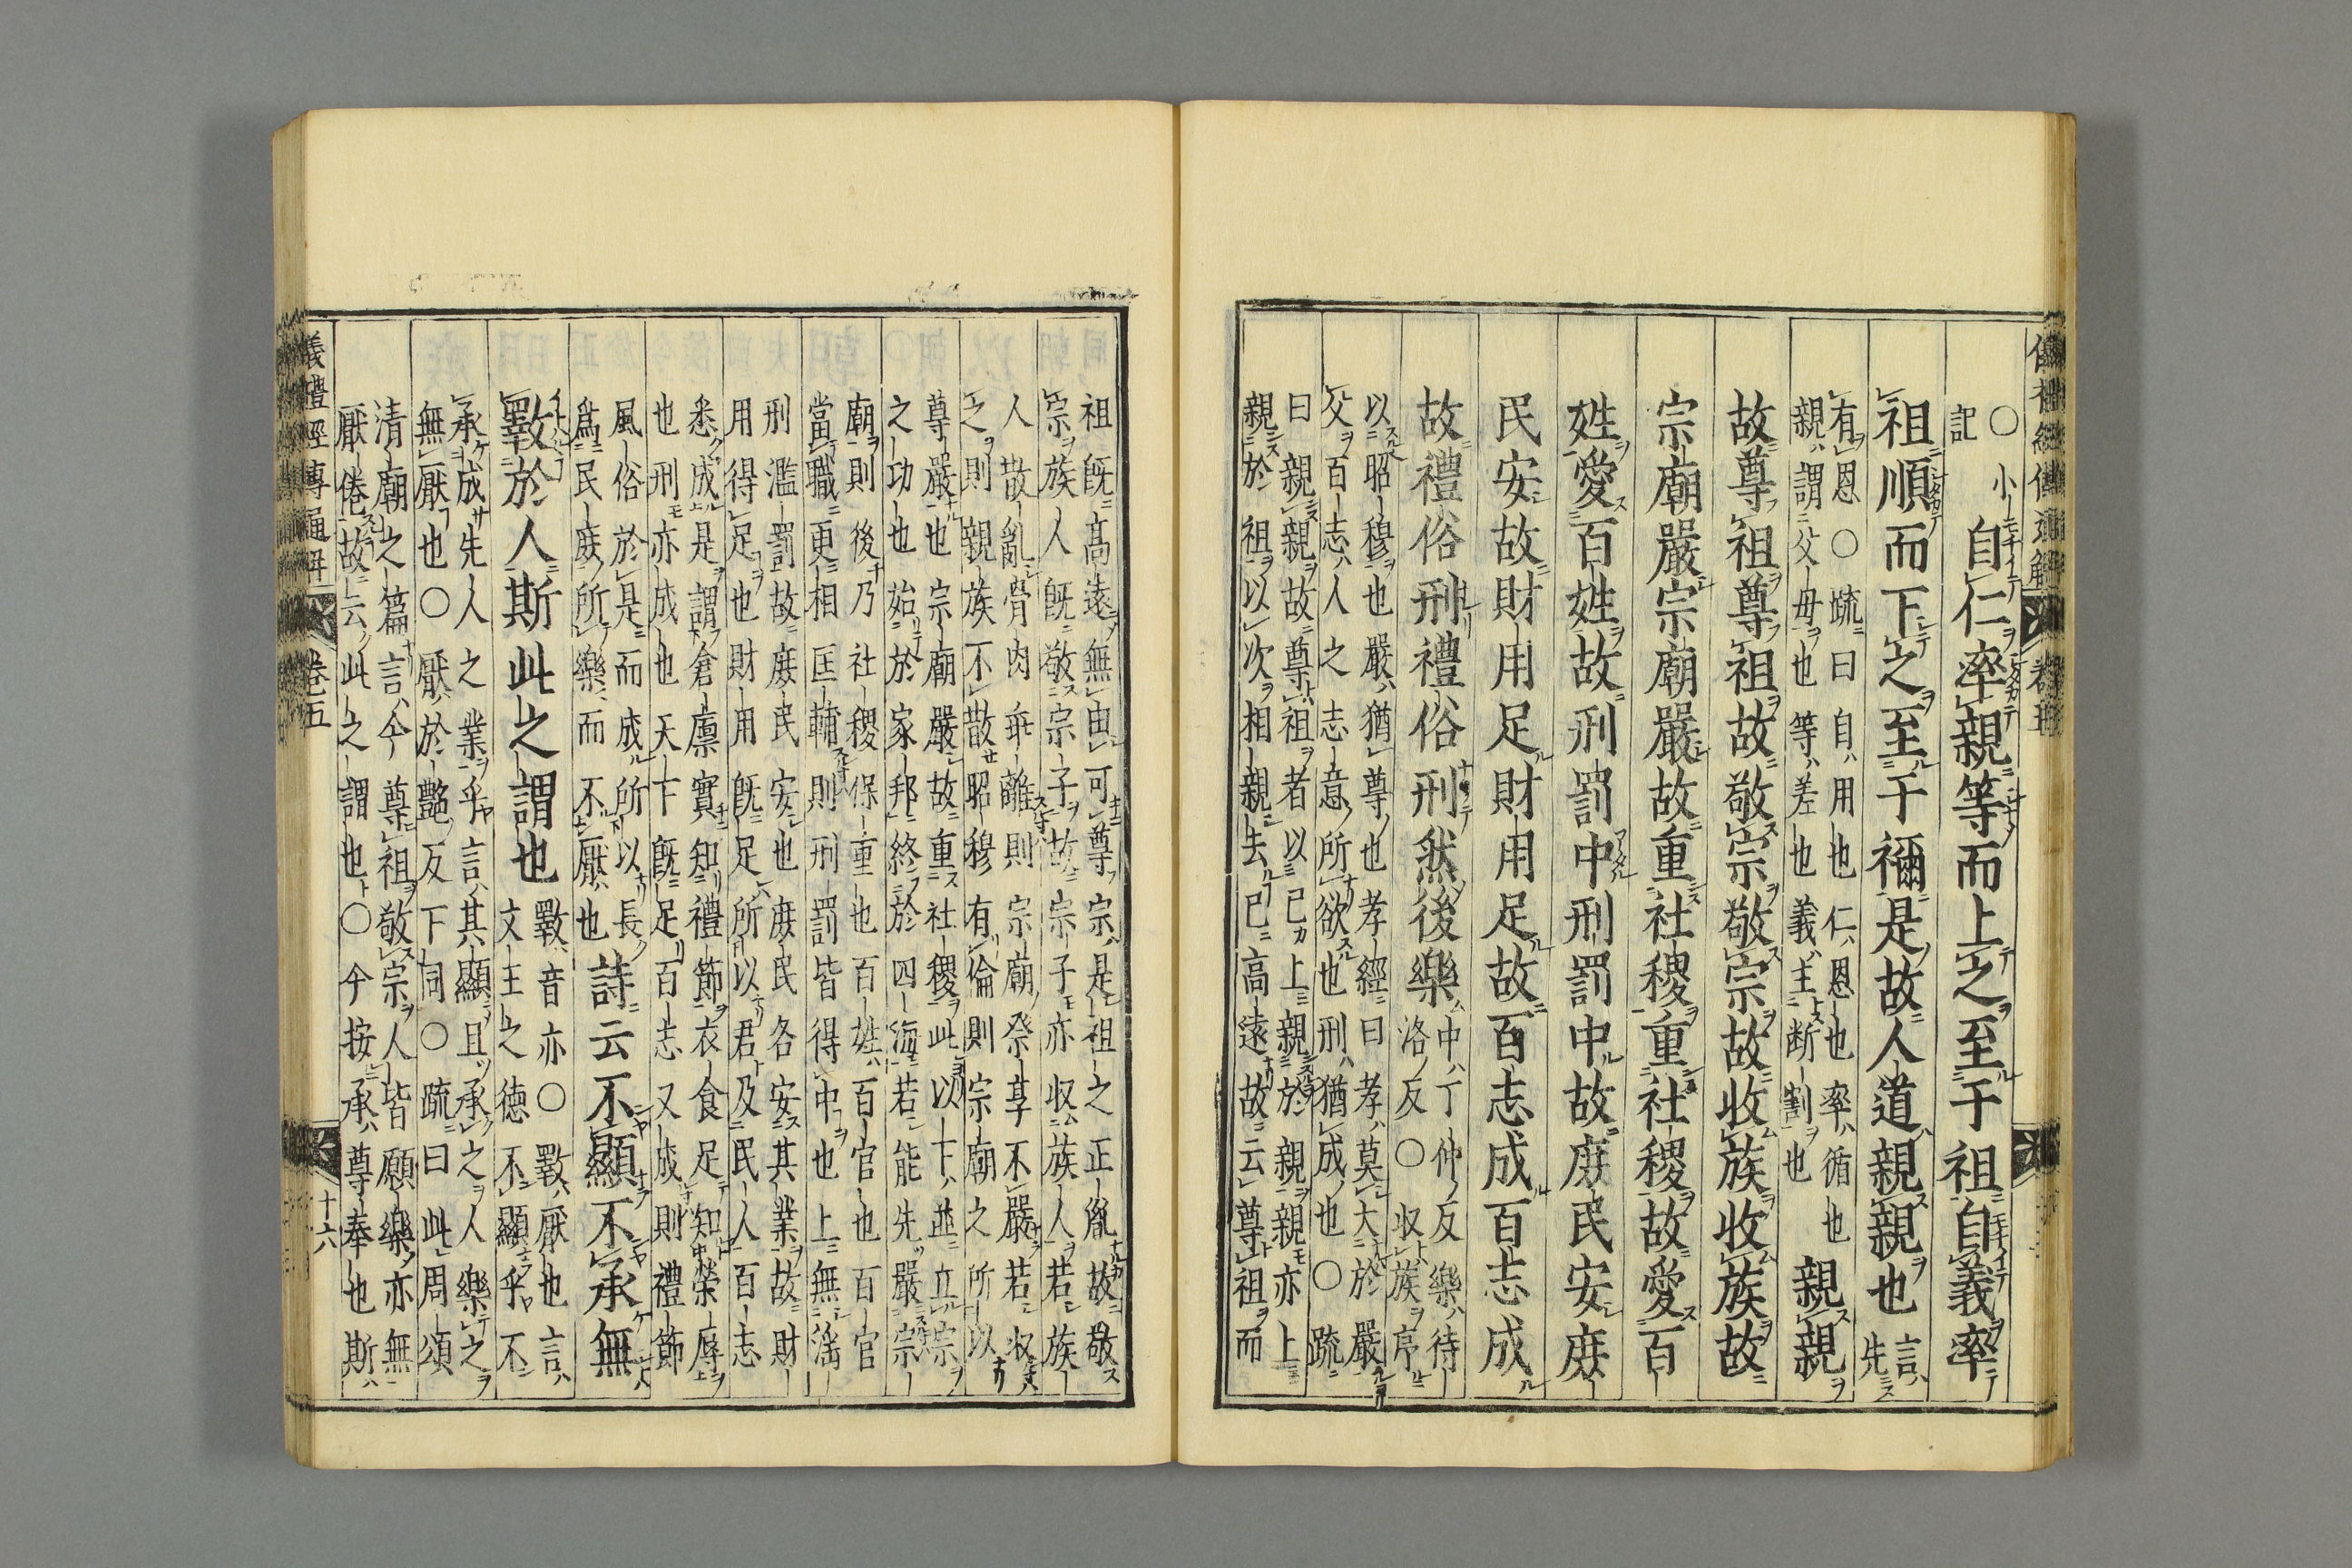 儀禮經傳通解 卷五
○小記 自仁率親等而上之至于祖自義率
祖順而下之至于禰是故人道親親也 言先
有恩○疏曰自用也仁恩也率循也
親謂父母也等差也義主斷割也 親親
故尊祖尊祖故敬宗敬宗故收族收族故
宗廟嚴宗廟嚴故重社稷重社稷故愛百
姓愛百姓故刑罰中刑罰中故庻民安庻
民安故財用足財用足故百志成百志成
故禮俗刑禮俗刑然後樂 中丁仲反樂待
洛反○収族序
以昭穆也嚴猶尊也孝經曰孝莫大於嚴
父百志人之志意所欲也刑猶成也○疏
曰親親故尊祖者以己上親於親親亦上
親於祖以次相親去己高遠故云尊祖而
祖旣高遠無由可尊宗是祖之正胤故敬
宗族人旣敬宗子故宗子亦収族人若族
人散亂骨肉乖離則宗廟祭享不嚴若収
之則親族不散昭穆有倫則宗廟之所以
尊嚴也宗廟嚴故重社稷此以下並立宗
之功也始於家邦終於四海若能先嚴宗
廟則後乃社稷保重也百姓百官也百官
當職更相匡輔則刑罰皆得中也上無淫
刑濫罰故庻民安也庻民各安其業故財
用得足也財用旣足所以君及民人百志
悉成是謂倉廪實知禮節衣食足知榮辱
也刑亦成也天下旣足百志又成則禮節
風俗於是而成所以長
爲民庻所樂而不厭也 詩云不顯不承無
斁於人斯此之謂也 斁音亦○斁厭也言
文王之德不顯乎不
承成先人之業乎言其顯且承之人樂之
無厭也○厭於艷反下同○疏曰此周頌
清廟之篇言今尊祖敬宗人皆願樂亦無
厭倦故云此之謂也○今按承尊奉也斯
儀禮經傳通解 卷五 十六